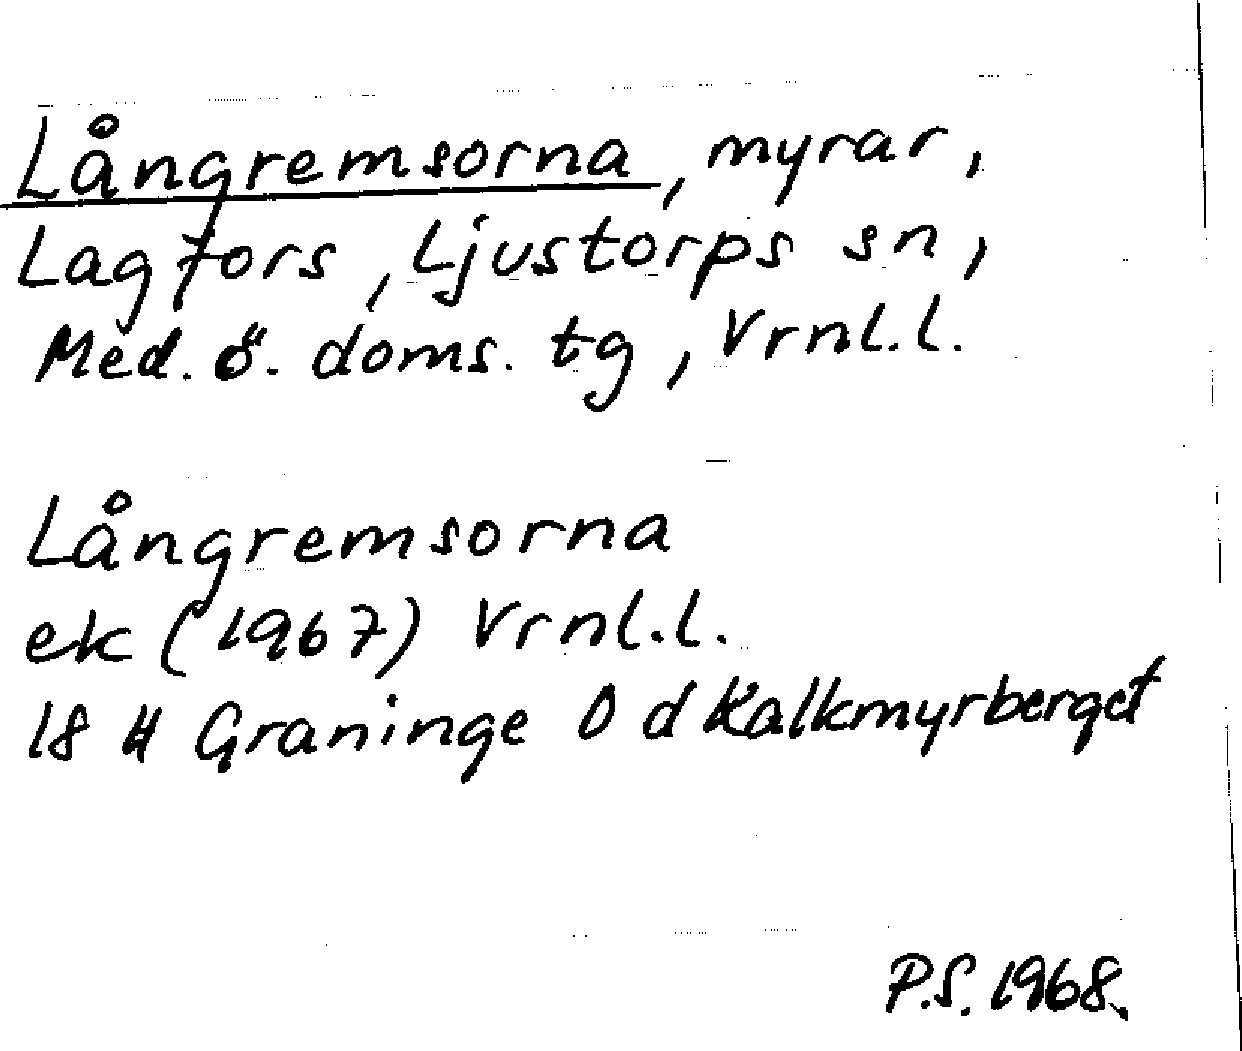 Långremsorna, myrar,
Lagfors, Ljustorps sn,
Med. ö. doms. tg, Vrnl.l.
Långremsorna
ek (1967) Vrnl.l.
18 H Graninge 0 d Kalkmyrberget
P.S. 1968.